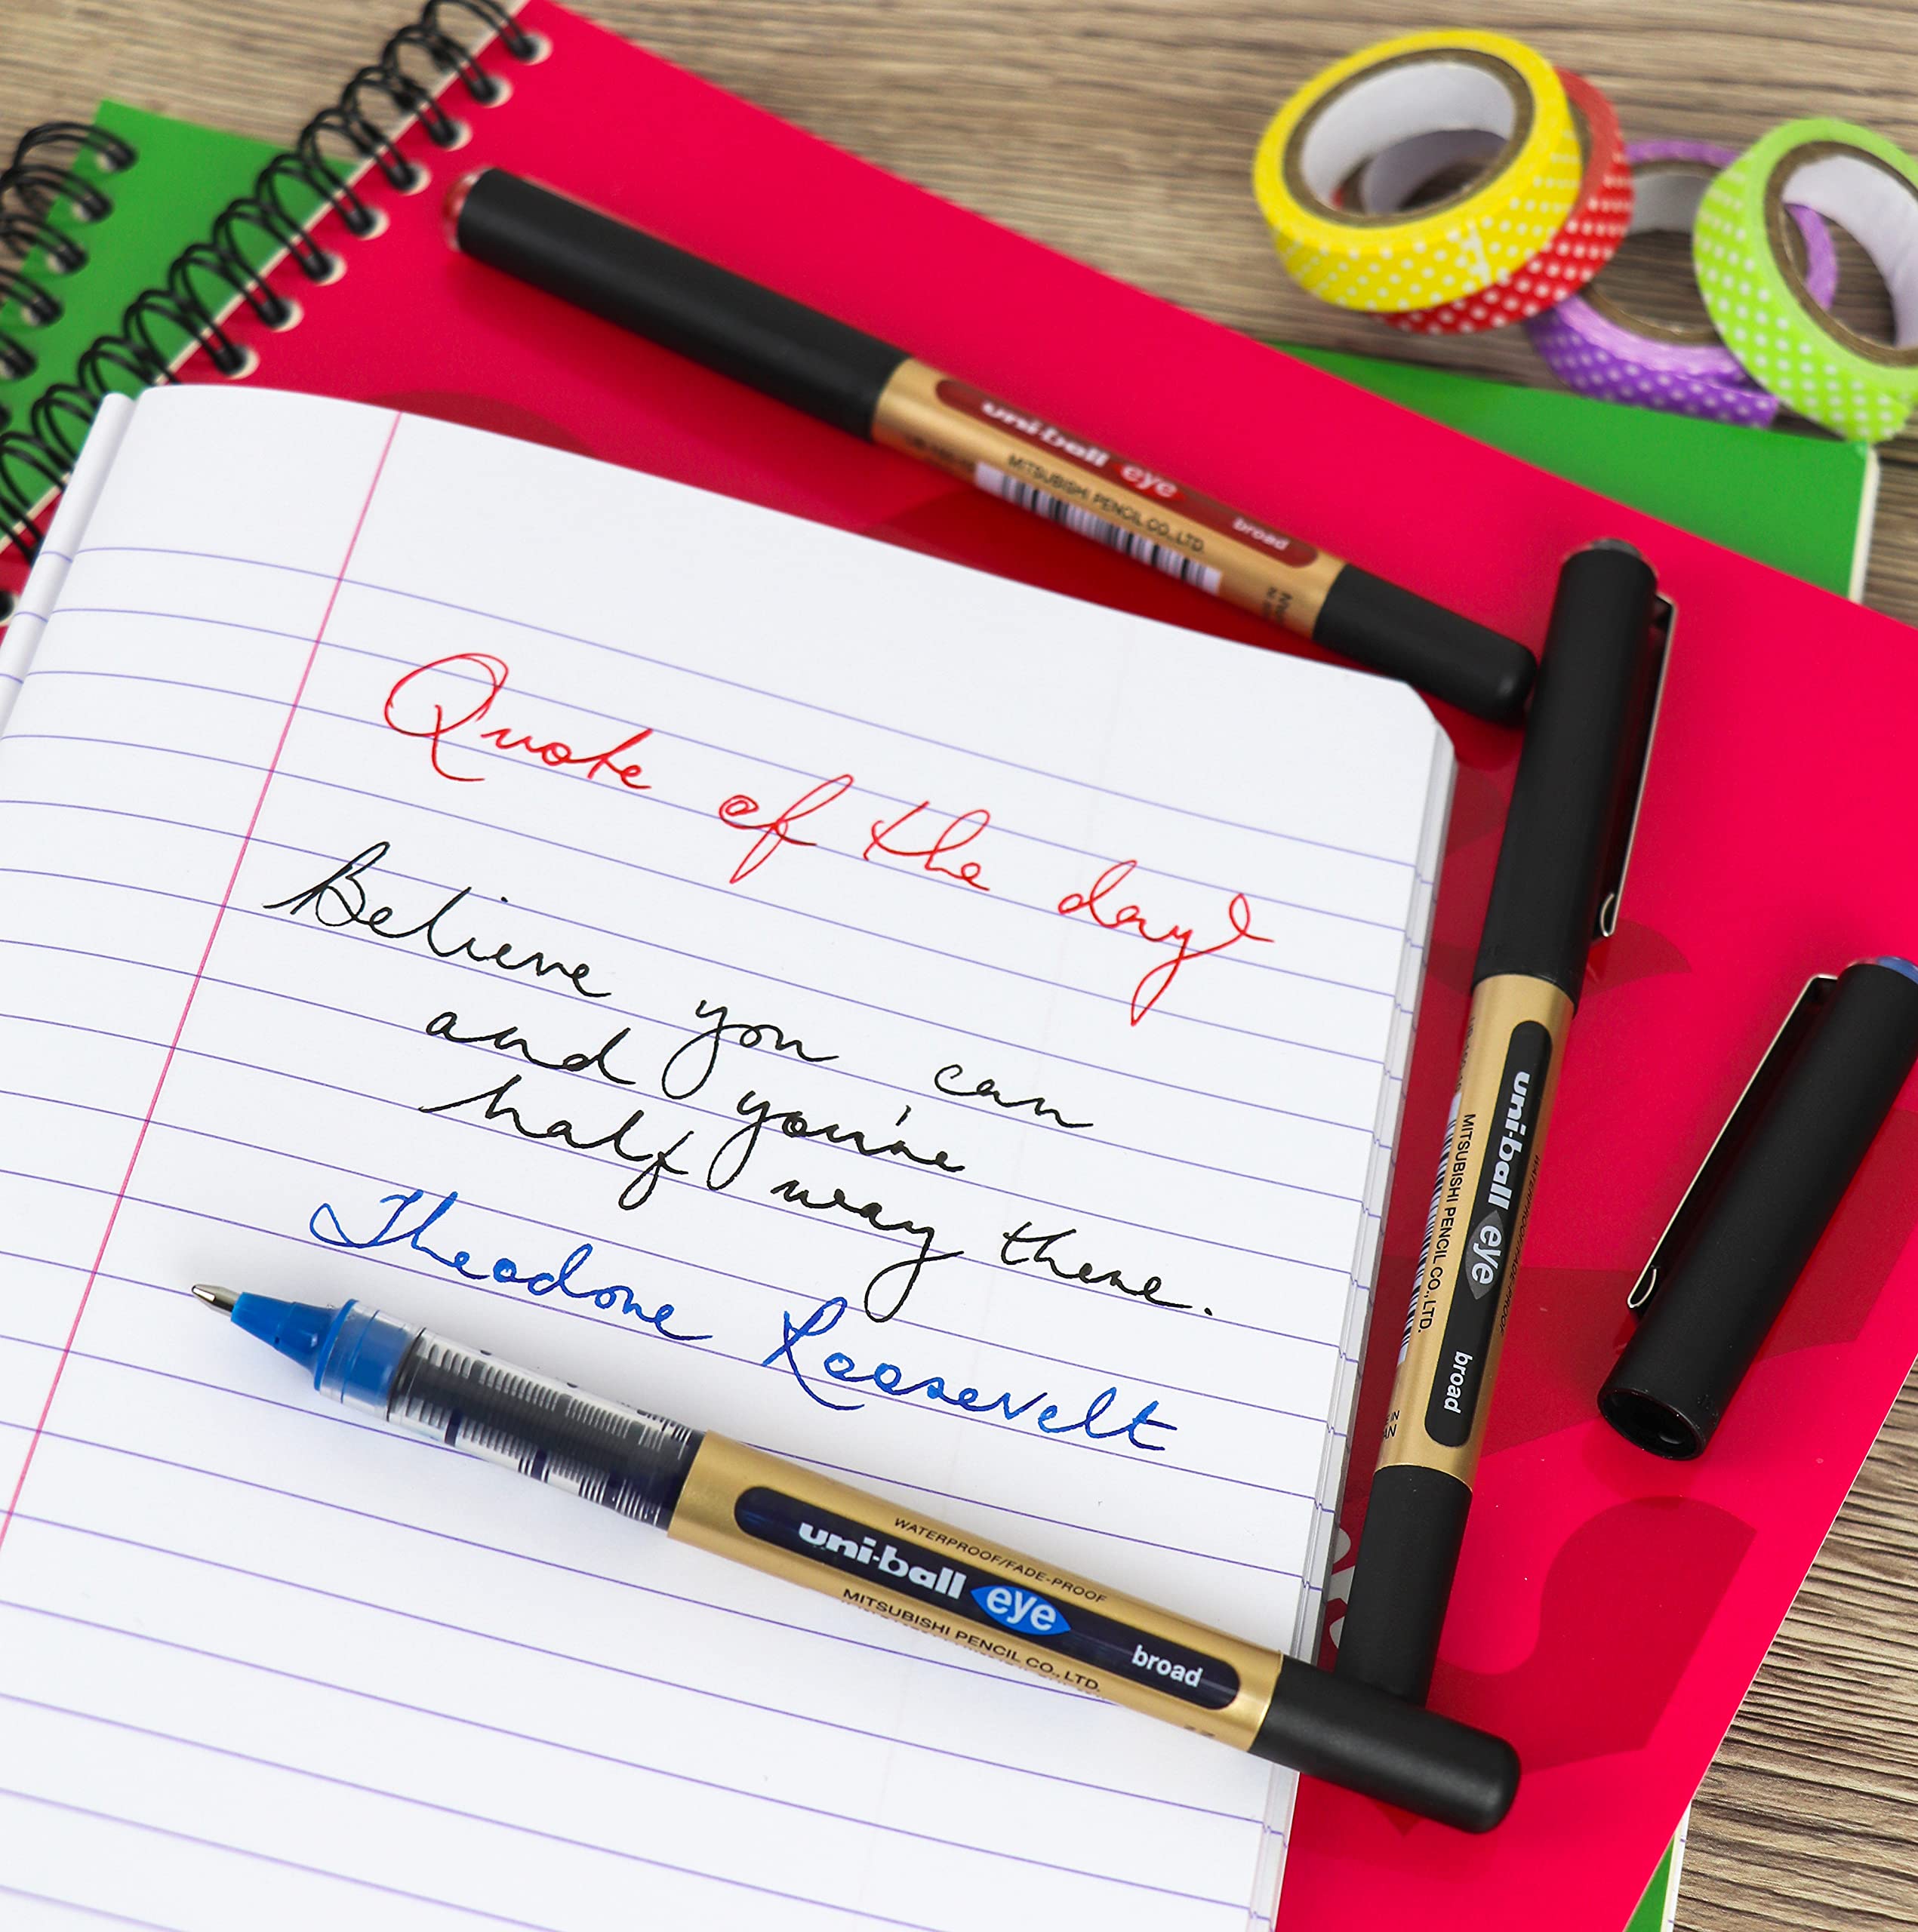 uni-ball eye broad
MITSUBISHI PENCIL CO., LTD.
Quote of the day?
Believe you can
and you're
half way there.
Theodore Roosevelt
uni-ball eye broad
MITSUBISHI PENCIL CO., LTD.
WATERPROOF/FADE-PROOF
WATERPROOF/FADE-PROOF
uni-ball eye broad
MITSUBISHI PENCIL CO., LTD.